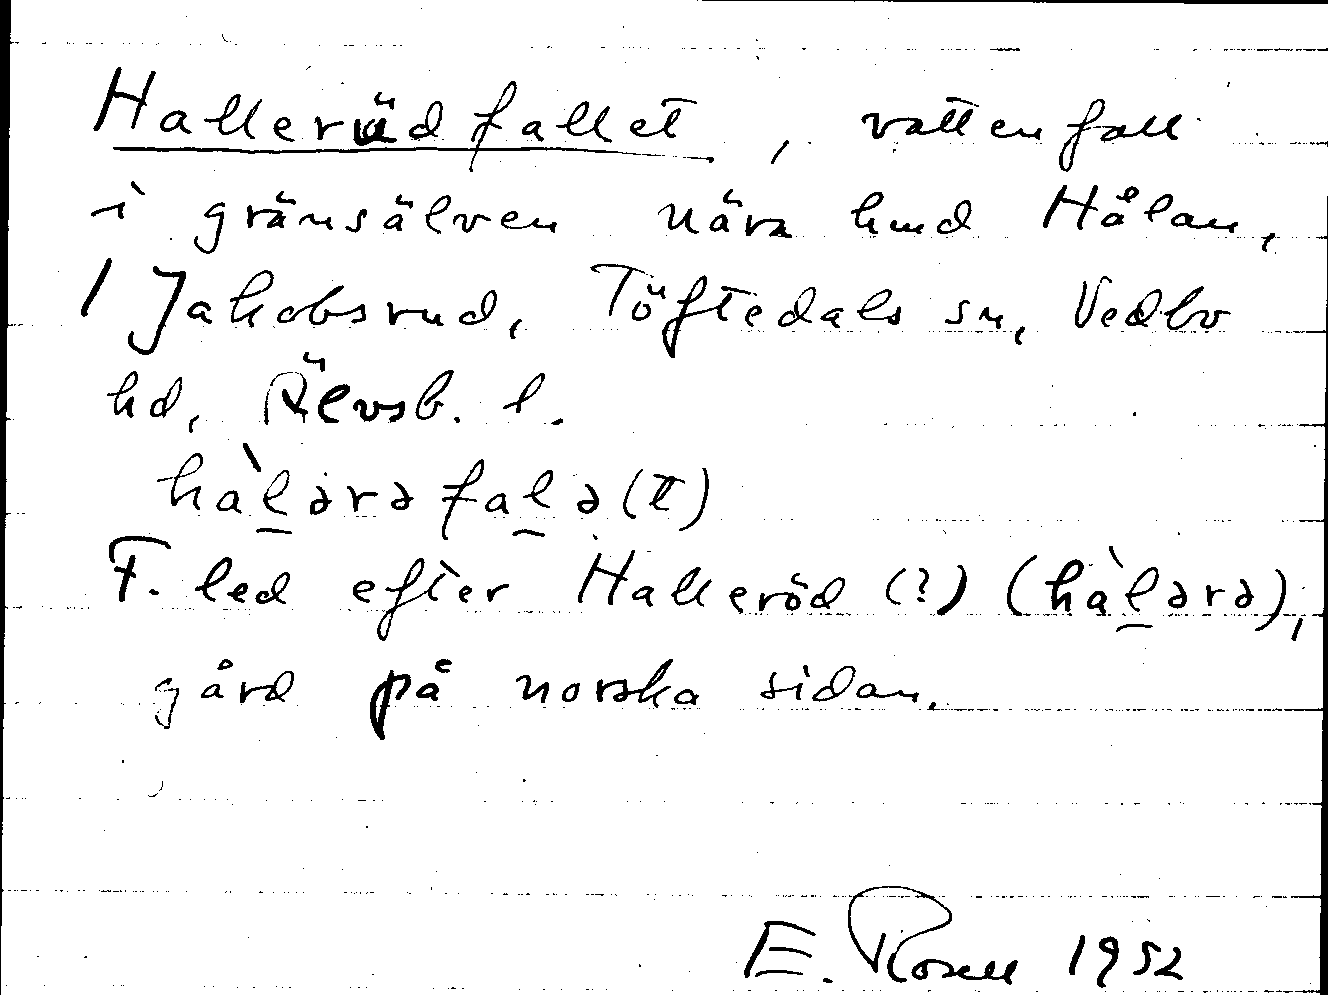 Hallerüdfallet, vattenfall
i gränsälven nära hmd Hålan,
/ Jakobsrud, Töftedals sn, Vedbo
hd, Älvsb. l.
hàl̠ərəfal̠ə(t)
F. led efter Halleröd (?) (hàl̠ərə),
gård på norska sidan.
E. Rosell 1952